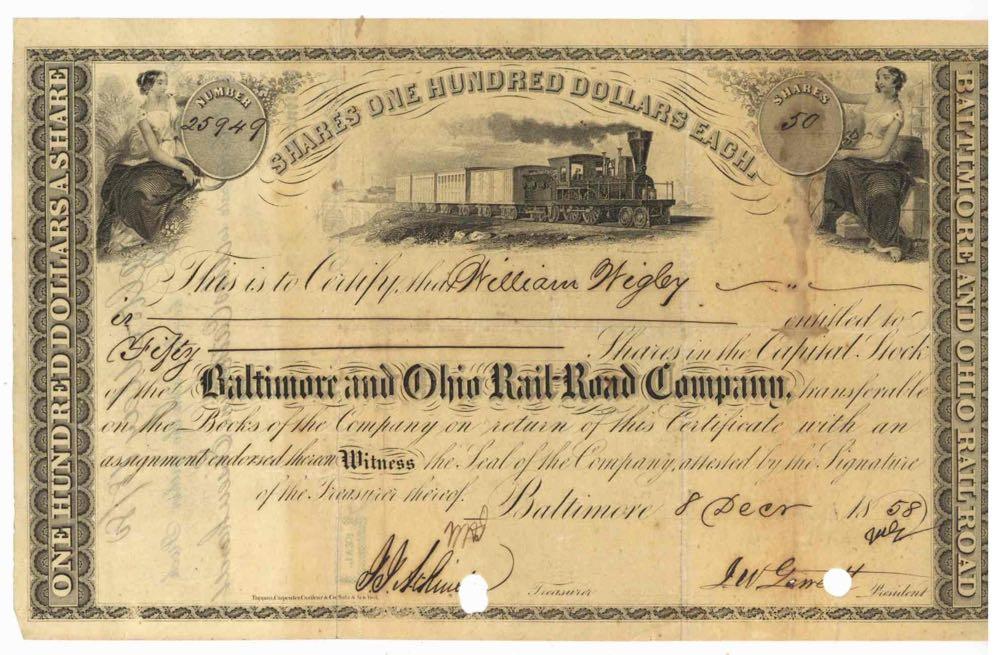 ONE HUNDRED DOLLARS A SHARE
NUMBER
25949
SHARES ONE HUNDRED DOLLARS EACH.
SHARES
50
BALTIMORE AND OHIO RAILROAD
This is to Certify, that William Wigley
is entitled to
Fifty Shares in the Capital Stock
of the Baltimore and Ohio Rail-Road Company, transferable
on the Books of the Company on return of this Certificate with an
assignment endorsed thereon Witness the Seal of the Company, attested by the Signature
of the Treasurer thereof. Baltimore 8 Decr 1858
Treasurer
J W Garrett President